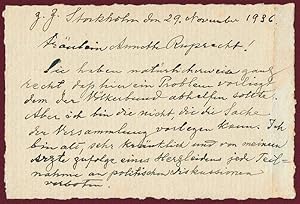 z. Z. Stockholm den 29. November 1936
Fräulein Annoth Ruprecht!
Sie haben natürlicherweise ganz
recht dass hier ein Problem vorliegt
dem der Völkerbund abhelfen sollte.
Aber ich bin die nicht, die die Sache
der Versammlung vorlegen kann. Ich
bin alt, sehr kränklich und von meinem
Arzte zufolge eines Herzleidens jede Teil-
nahme an politischen Diskussionen
verboten.